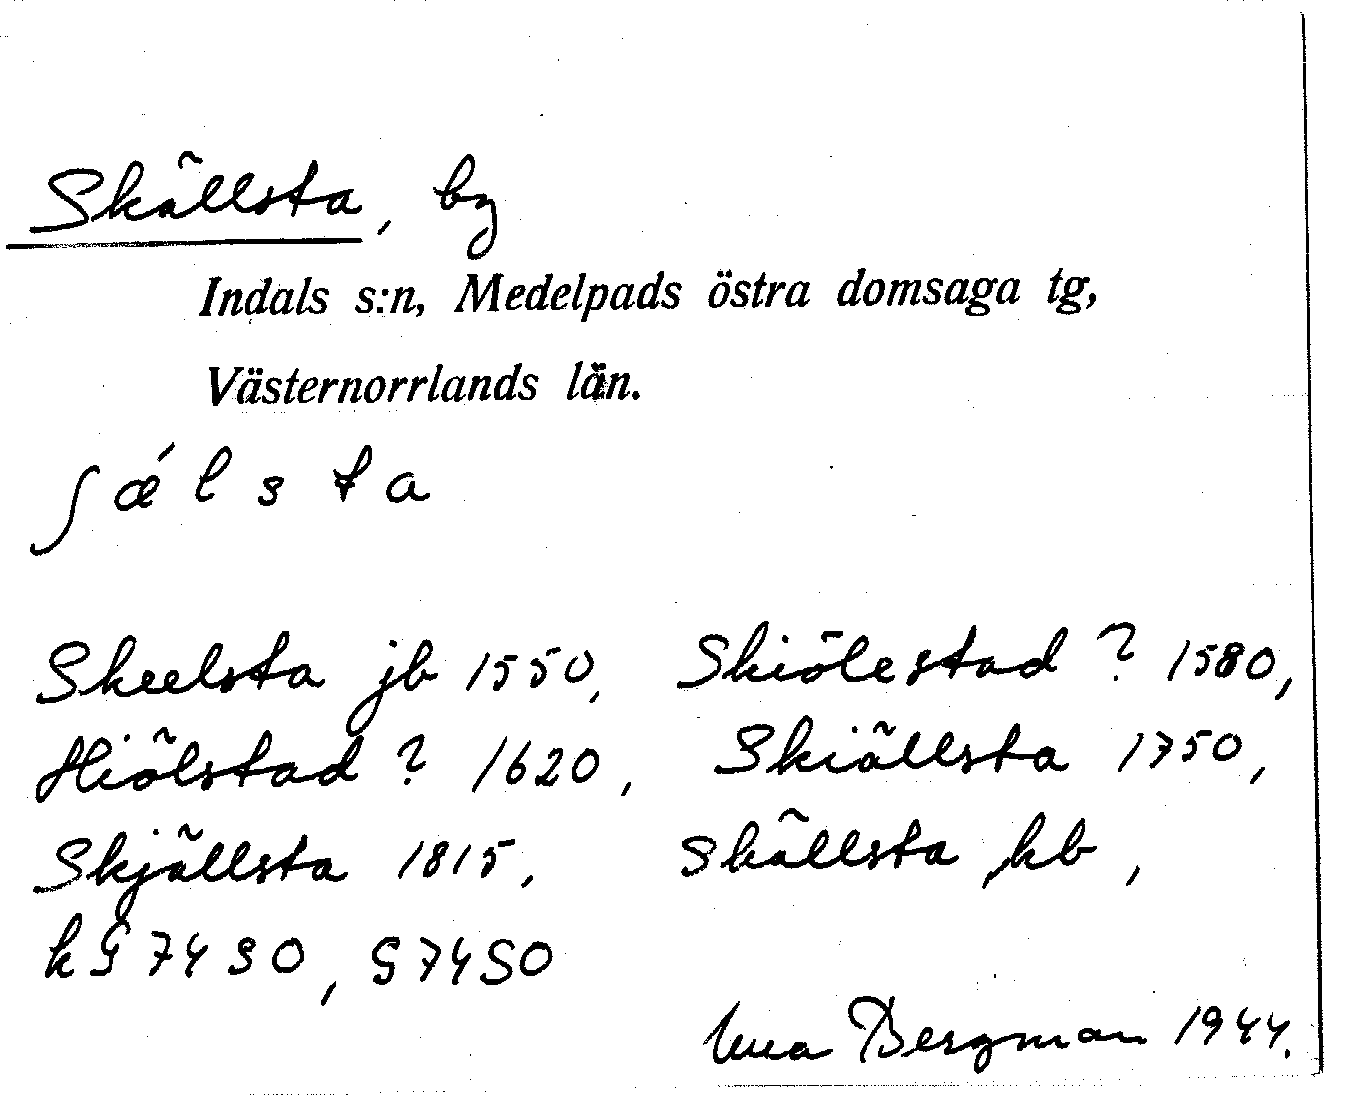 Skällsta, by
Indals s:n, Medelpads östra domsaga tg,
Västernorrlands län.
ʃ ǽ l s t a
Skeelsta jb 1550, Skiölestad ? 1580,
Hiölstad ? 1620, Skiällsta 1750,
Skjällsta 1815, Skällsta kb,
Bergman 1944.